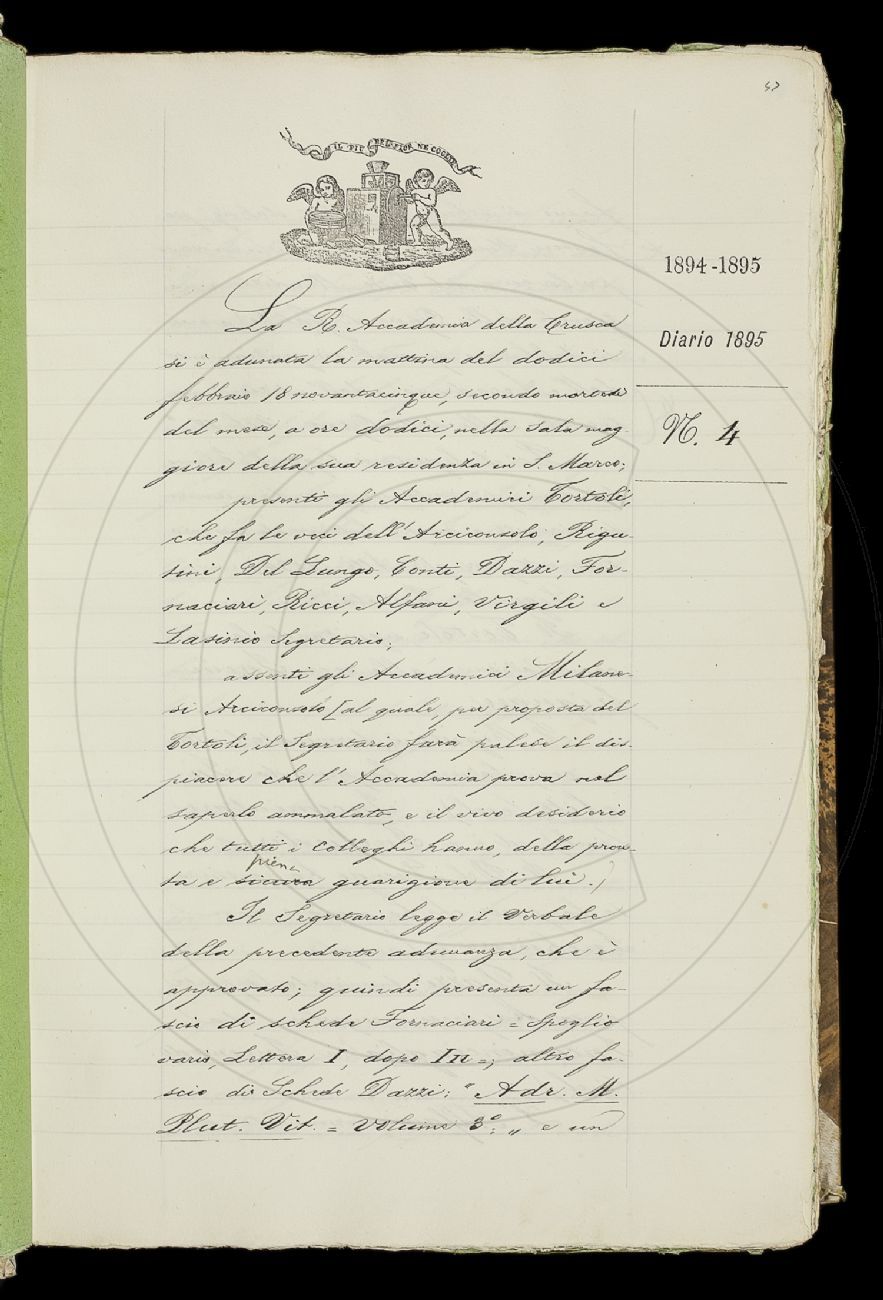 IL PIÙ BEL FIOR NE COGLIE
1894-1895
Diario 1895
N. 4
La R. Accademia della Crusca
si è adunata la mattina del dodici
febbraio 18 novantacinque, secondo martedì
del mese, a ore dodici, nella sala mag-
giore della sua residenza in S. Marco;
presenti gli Accademici Tortoli,
che fa le veci dell'Arciconsolo, Rigu-
tini, Del Lungo, Conti, Dazzi, For-
naciari, Ricci, Alfani, Virgili e
Lasinio Segretario;
assenti gli Accademici Milane-
si Arciconsolo [al quale, per proposta del
Tortoli, il Segretario farà palese il dis-
piacere che l'Accademia prova nel
saperlo ammalato, e il vivo desiderio
che tutti i Colleghi hanno, della pron-
piena
ta e sicura guarigione di lui.)
Il Segretario legge il Verbale
della precedente adunanza, che è
approvato; quindi presenta un fa-
scio di schede Fornaciari = Spoglio
vario, Lettera I, dopo In =; altro fa-
scio di Schede Dazzi: " Adr. M.
Plut. Vit. = Volume 3°: „ e un